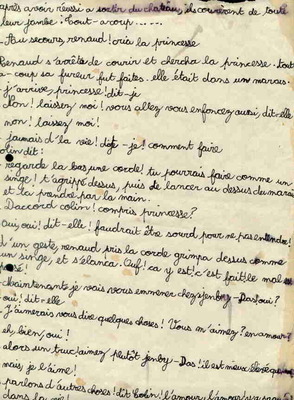 après avoir réussi a sortir du chateau, ils coururent de toute
leur jambe! Tout-a-coup......
- Au secours, renaud! cria la princesse
Renaud s'arrète de courir et chercha la princesse. tout
a-coup sa fureur fut faites. elle était dans un marais.
- j'arrive, princesse! dit-je
- Non! laissez moi! vous allez vous enfoncez aussi, dit-elle
non! laissez moi!
- jamais d'la vie! dis-je! comment faire
colin dit:
- regarde la bas une corde! tu pourrais faire comme un
singe! t'agrippé dessus, puis de lancer au dessus du marais
et la prendre par la main.
- D'accord colin! compris princesse?
- Oui, oui! dit-elle! faudrait être sourd pour ne pas entendre!
d'un geste, renaud pris la corde grimpa dessus comme
un singe, et s'élança. Ouf! ca y est! c'est fait! le mal est
passé!
- Maintenante je vais vous emmener chez jenbry-Das! oui?
- oui! dit-elle
- J'aimerais vous dire quelques choses! Vous m'aimez? en amour?
- eh bien, oui!
- alors un truc! aimez plutôt jenbry-Das! il est mieux
- mais, je l'aime!
- parlons d'autres choses! dit Colin! l'amour, l'amour
dans la vie!